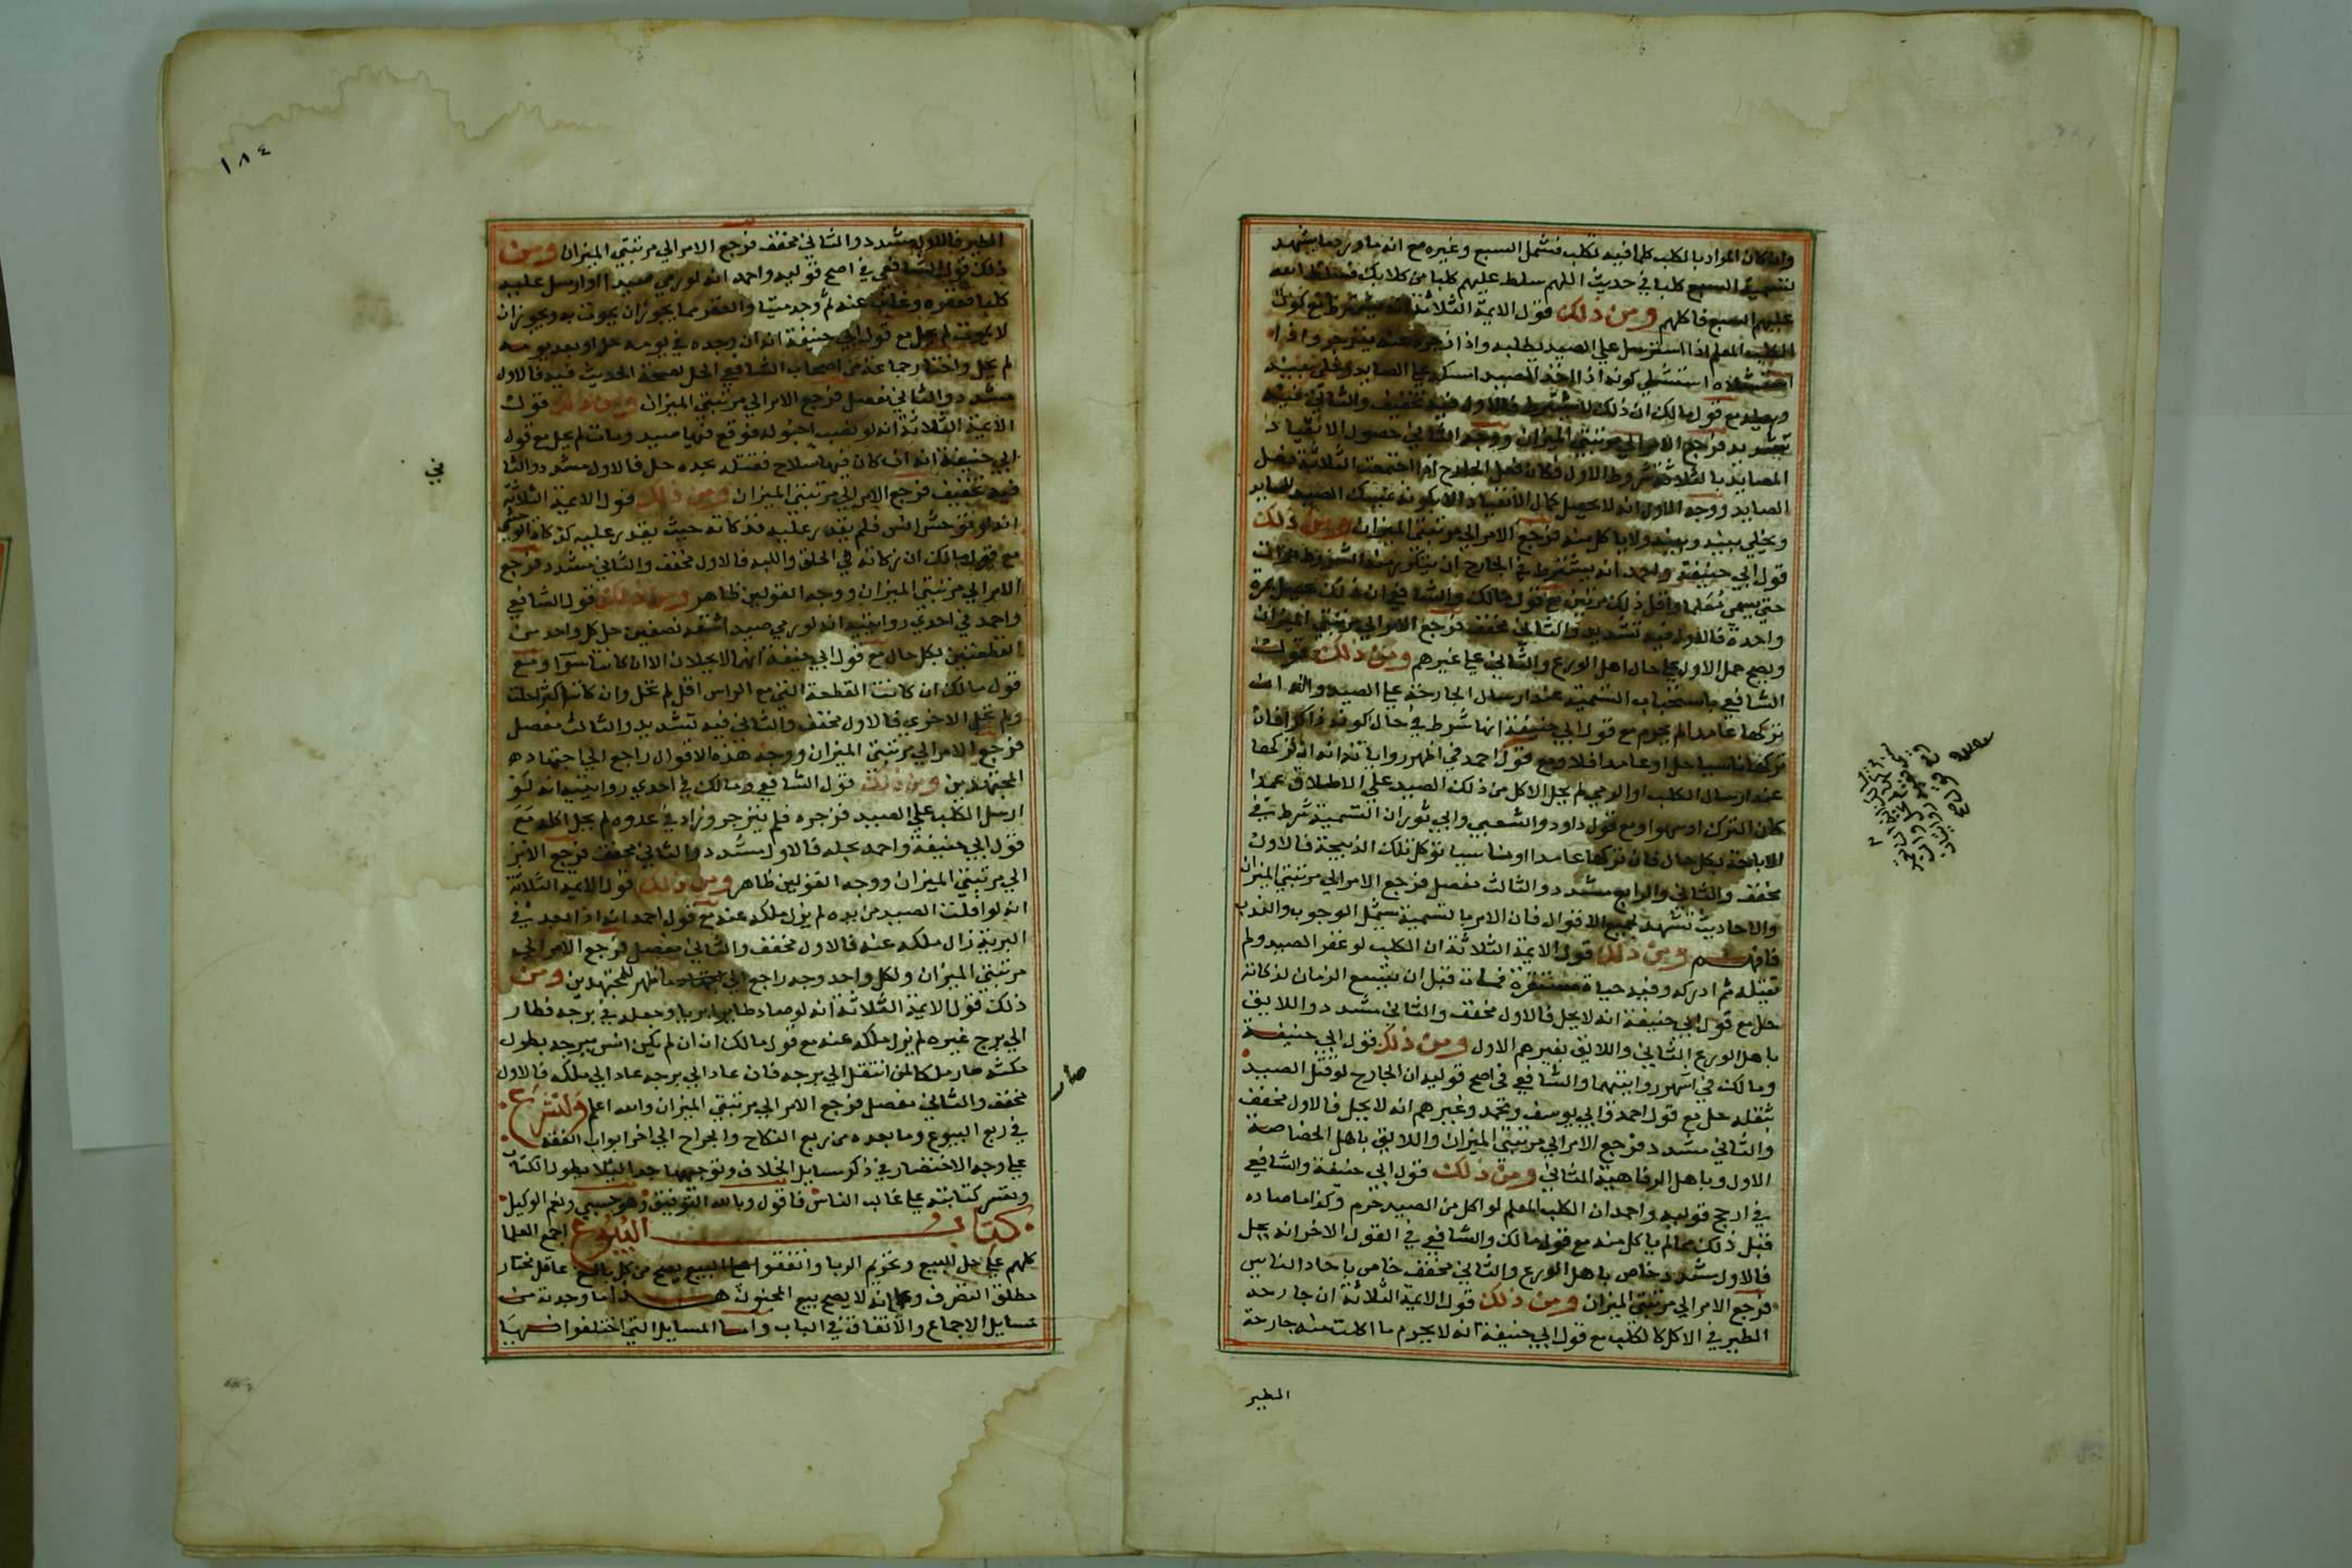 وان كان المراد بالكلب كلما فيه تكلب فشمل السبع وغيره مع انه ما ورد ما يشهد
لتسمية السبع كلبا في حديث اللهم سلط عليهم كلبا من كلابك فسلط الله
عليهم السبع فاكلهم ومن ذلك قول الايمة الثلاثة انه يشترط في كون
الكلب المعلم اذا استرسل علي الصيد بطلبه واذا زجره عنه ينزجر واذا
استشلاه استشلي كونه اذا اخذ الصيد امسكه علي الصايد وخلي بينه
وبينه مع قول مالك ان ذلك لا يشترط فالاول فيه تخفيف والثاني فيه
تشديد فرجع الامر الي مرتبتي الميزان ووجه الثاني حصول الانقياد
المصايد بالثلاثة شروط الاول فكان فعل الجارح اذا اجتمعت الثلاثة فعل
الصايد ووجه الاول انه لا يحصل كمال الانقياد الا بكونه يمسك الصيد للصايد
ويخلي بينه وبينه ولا ياكل منه فرجع الامر الي مرتبتي الميزان ومن ذلك
قول ابي حنيفة واحمد انه يشترط في الجارح ان يتكرر منه الشروط مرات
حتي يسمي معلما واقل ذلك مرتين مع قول مالك والشافعي ان ذلك يحصل بمرة
واحدة فالاول فيه تشديد والثاني مخفف فرجع الامر الي مرتبتي الميزان
ويصح حمل الاول علي حال اهل الورع والثاني علي غيرهم ومن ذلك قول
الشافعي باستحباب التسمية عند ارسال الجارحة علي الصيد وانه ان
تركها عامدا لم يحرم مع قول ابي حنيفة انها شرط في حال كونه ذاكرا فان
تركها ناسيا حل او عامدا فلا ومع قول احمد في اظهر رواياته انه ان تركها
عند ارسال الكلب او الرمي لم يحل الاكل من ذلك الصيد علي الاطلاق عمدا
كان الترك او سهوا ومع قول داود والشعبي وابي ثور ان التسمية شرط في
الاباحة بكل حال فان تركها عامدا او ناسيا لم تؤكل تلك الذبيحة فالاول
مخفف والثاني والرابع مشدد والثالث مفصل فرجع الامر الي مرتبتي الميزان
والاحاديث تشهد لجميع الاقوال فان الامر بالتسمية يشمل الوجوب والندب
فافهم ومن ذلك قول الايمة الثلاثة ان الكلب لو عقر الصيد ولم
يقتله ثم ادركه وفيه حياة مستقرة فمات قبل ان يتسع الزمان لذكاته
حل مع قول ابي حنيفة انه لا يحل فالاول مخفف والثاني مشدد واللايق
باهل الورع الثاني واللايق بغيرهم الاول ومن ذلك قول ابي حنيفة
ومالك في اشهر روايتيهما والشافعي في اصح قوليه ان الجارح لو قتل الصيد
بثقله حل مع قول احمد وابي يوسف ومحمد وغيرهم انه لا يحل فالاول مخفف
والثاني مشدد فرجع الامر الي مرتبتي الميزان واللايق باهل الخصاصة
الاول وباهل الرفاهية الثاني ومن ذلك قول ابي حنيفة والشافعي
في ارجح قوليه واحمد ان الكلب المعلم لو اكل من الصيد حرم وكذا ما صاده
قبل ذلك مما لم ياكل منه مع قول مالك والشافعي في القول الاخر انه يحل
فالاول مشدد خاص باهل الورع والثاني مخفف خاص باحاد الناس
فرجع الامر الي مرتبتي الميزان ومن ذلك قول الايمة الثلاثة ان جارحة
الطير في الاكل كالكلب مع قول ابي حنيفة انه لا يحرم ما اكلت منه جارحة
الطير
١٨٤
الطير فالاول مشدد والثاني مخفف فرجع الامر الي مرتبتي الميزان ومن
ذلك قول الشافعي في اصح قوليه واحمد انه لو رمي صيدا او ارسل عليه
كلبا فعقره وغاب عنه ثم وجد ميتا والعقر مما يجوز ان يموت به ويجوز ان
لا يموت لم يحل مع قول ابي حنيفة انه ان وجده في يومه حل او بعد يومه
لم يحل واختار جماعة من اصحاب الشافعي الحل لصحة الحديث فيه فالاول
مشدد والثاني مفصل فرجع الامر الي مرتبتي الميزان ومن ذلك قول
الايمة الثلاثة انه لو نصب احبولة فوقع فيها صيد ومات لم يحل مع قول
ابي حنيفة انه ان كان فيها سلاح فقتله بحده حل فالاول مشدد والثا
ني
فيه تخفيف فرجع الامر الي مرتبتي الميزان ومن ذلك قول الايمة الثلاثة
انه لو توحش انسي فلم يقدر عليه فذكاته حيث يقدر عليه كذكاة الوحشي
مع قول مالك ان ذكاته في الحلق واللبة فالاول مخفف والثاني مشدد فرجع
الامر الي مرتبتي الميزان ووجه القولين ظاهر ومن ذلك قول الشافعي
واحمد في احدي روايتيه انه لو رمي صيدا فقده نصفين حل كل واحد من
القطعتين بكل حال مع قول ابي حنيفة انهما لا يحلان الا ان كانتا سوا ومع
قول مالك ان كانت القطعة التي مع الراس اقل لم تحل وان كانت اكثر احلت
ولم تحل الاخري فالاول مخفف والثاني فيه تشديد والثالث مفصل
فرجع الامر الي مرتبتي الميزان ووجه هذه الاقوال راجع الي اجتهاد
المجتهدين ومن ذلك قول الشافعي ومالك في احدي روايتيه انه لو
ارسل الكلب علي الصيد فزجره فلم ينزجر وزاد في عدوه لم يحل اكله مع
قول ابي حنيفة واحمد بحله فالاول مشدد والثاني مخفف فرجع الامر
الي مرتبتي الميزان ووجه القولين ظاهر ومن ذلك قول الايمة الثلاثة
انه لو افلت الصيد من يده لم يزل ملكه عنه مع قول احمد انه اذا ابعد في
البرية زال ملكه عنه فالاول مخفف والثاني مفصل فرجع الامر الي
مرتبتي الميزان ولكل واحد وجه راجع الي ما ظهر للمجتهدين ومن
ذلك قول الايمة الثلاثة انه لو صاد طايرا بريا وجعله في برجه فطار
الي برج غيره لم يزل ملكه عنه مع قول مالك انه ان لم يكن انس ببرجه بطول
مكثه صار ملكا لمن انتقل الي برجه فان عاد الي برجه عاد الي ملكه فالاول
مخفف والثاني مفصل فرجع الامر الي مرتبتي الميزان والله اعلم ولنشرع
في ربع البيوع وما بعده من ربع النكاح والجراح الي اخر ابواب الفقه
علي وجه الاختصار في ذكر مسايل الخلاف وتوجيهها جدا ليلا يطول الكتاب
وتعسر كتابته علي غالب الناس فاقول وبالله التوفيق وهو حسبي ونعم الوكيل
كتاب البيوع اجمع العلما
كلهم علي حل البيع وتحريم الربا واتفقوا علي ان البيع يصح من كل بالغ عاقل مختار
مطلق التصرف وعلي انه لا يصح بيع المجنون هذا ما وجدته من
مسايل الاجماع والاتفاق في الباب واما المسايل التي اختلفوا فيها